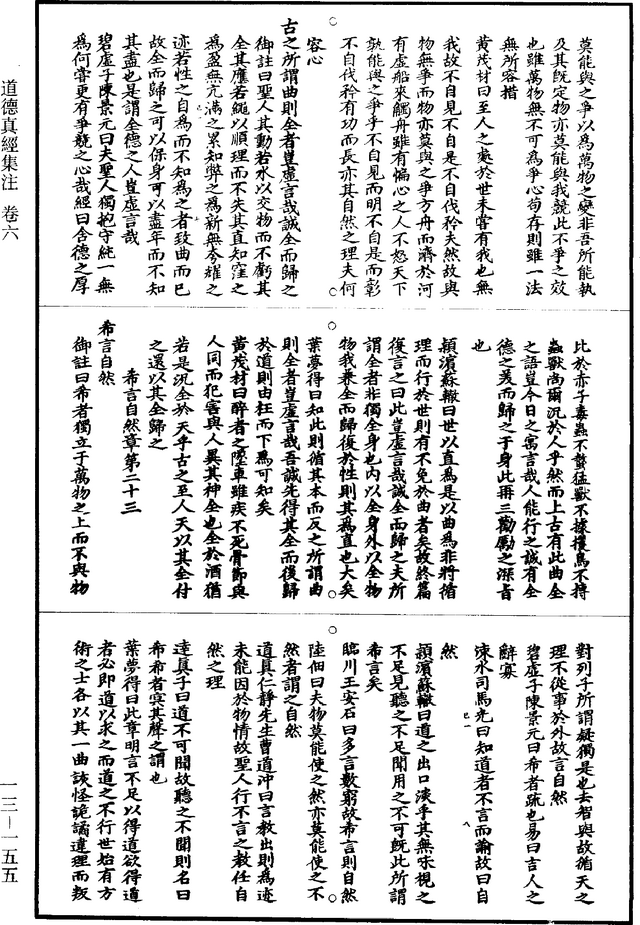 莫能與之爭以為萬物之變非吾所能執
及其既定物亦莫能與我競此不爭之效
也雖萬物無不可為爭心苟存則雖一法
無所容措
黃茂材曰至人之處於世未嘗有我也無
我故不自見不自是不自伐矜夫然故與
物無爭而物亦莫與之爭方舟而濟於河
有虛船來觸舟雖有惼心之人不怒天下
孰能與之爭乎不自見而明不自是而彰
不自伐矜有功而長亦其自然之理夫何
容心
古之所謂曲則全者豈虛言哉誠全而歸之
御註曰聖人其動若水以交物而不虧其
全其應若繩以順理而不失其直知窪之
為盈無亢滿之累知弊之為新無夸耀之
迹若性之自為而不知為之者致曲而已
故全而歸之可以保身可以盡年而不知
其盡也是謂全德之人豈虛言哉
碧虛子陳景元曰夫聖人獨抱守純一無
為何嘗更有爭競之心哉經曰含德之厚
比於赤子毒蟲不螫猛獸不據攫鳥不搏
蟲獸尚爾況於人乎然而上古有此曲全
之語豈今日之寓言哉人能行之誠有全
德之美而歸之于身此再三勸勵之深旨
也
潁濱蘇轍曰世以直為是以曲為非將循
理而行於世則有不免於曲者矣故終篇
復言之曰此豈虛言哉誠全而歸之夫所
謂全者非獨全身也內以全身外以全物
物我兼全而歸復於性則其為直也大矣
葉夢得曰知此則循其本而反之所謂曲
則全者豈虛言哉吾誠先得其全而後歸
於道則由枉而下為可知矣
黃茂材曰醉者之墜車雖疾不死骨節與
人同而犯害與人異其神全也全於酒猶
若是況全於天乎古之至人天以其全付
之還以其全歸之
希言自然章第二十三
希言自然
御註曰希者獨立于萬物之上而不與物
對列子所謂疑獨是也去智與故循天之
理不從事於外故言自然
碧虛子陳景元曰希者疏也易曰言人之
辭寡
涑水司馬光曰知道者不言而諭故曰自
然
潁濱蘇轍曰道之出口淡乎其無味視之
不足見聽之不足聞用之不可既此所謂
希言矣
臨川王安石曰多言數窮故希言則自然
陸佃曰夫物莫能使之然亦莫能使之不
然者謂之自然
道真仁靜先生曹道沖曰言教出則為迹
未能因於物情故聖人行不言之教任自
然之理
達真子曰道不可聞故聽之不聞則名曰
希希者冥其聲之謂也
葉夢得曰此章明言不足以得道欲得道
者必即道以求之而道之不行世始有方
術之士各以其一曲詼怪詭譎違理而叛
道德真經集注 卷六
一三—一五五